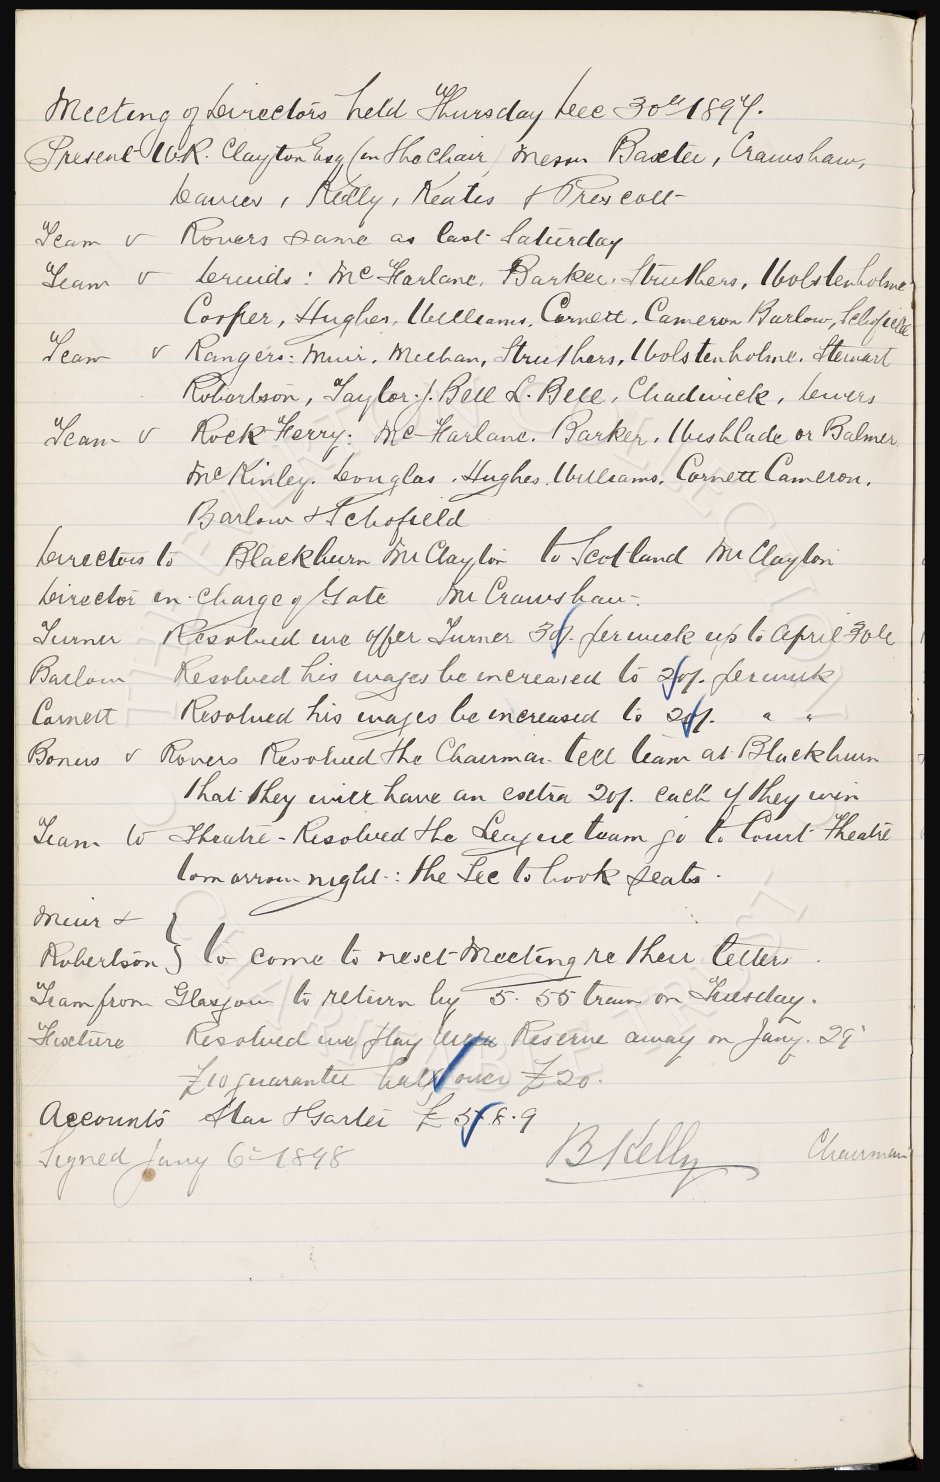 Meeting of Directors held Thursday Dec 30th 1897.
Present W.R. Clayton Esq (in the Chair) Messrs Baxter, Crawshaw,
Davies, Kelly, Keates & Prescott
Team v Rovers same as last Saturday
Team v Druids: McFarlane, Barker, Struthers, Wolstenholme
Cooper, Hughes, Williams, Cornett, Cameron Barlow, Schofield
Team v Rangers: Muir, Meehan, Struthers, Wolstenholme, Stewart
Robertson, Taylor, J. Bell L. Bell, Chadwick, Divers
Team v Rock Ferry: McFarlane, Barker, Wishlade or Balmer
McKinley, Douglas, Hughes, Williams, Cornett Cameron,
Barlow & Schofield
Directors to Blackburn Mr Clayton to Scotland Mr Clayton
Director in charge of Gate Mr Crawshaw.
Turner Resolved we offer Turner 30/- per week up to April 30th
Barlow Resolved his wages be increased to 20/- per week
Cornett Resolved his wages be increased to 20/- " "
Bonus v Rovers Resolved the Chairman tell team at Blackburn
that they will have an extra 20/- each if they win
Team to Theatre - Resolved the League team go to Court Theatre
tomorrow night: the Sec to book seats.
Muir &
Robertson } to come to next Meeting re their letters.
Team from Glasgow to return by 5.55 train on Tuesday.
Fixture Resolved we play Reserve away on Jany. 29
£10 guarantee half over £20.
Accounts Star & Garter £ 8.9
Signed Jany 6th 1898 B Kelly Chairman